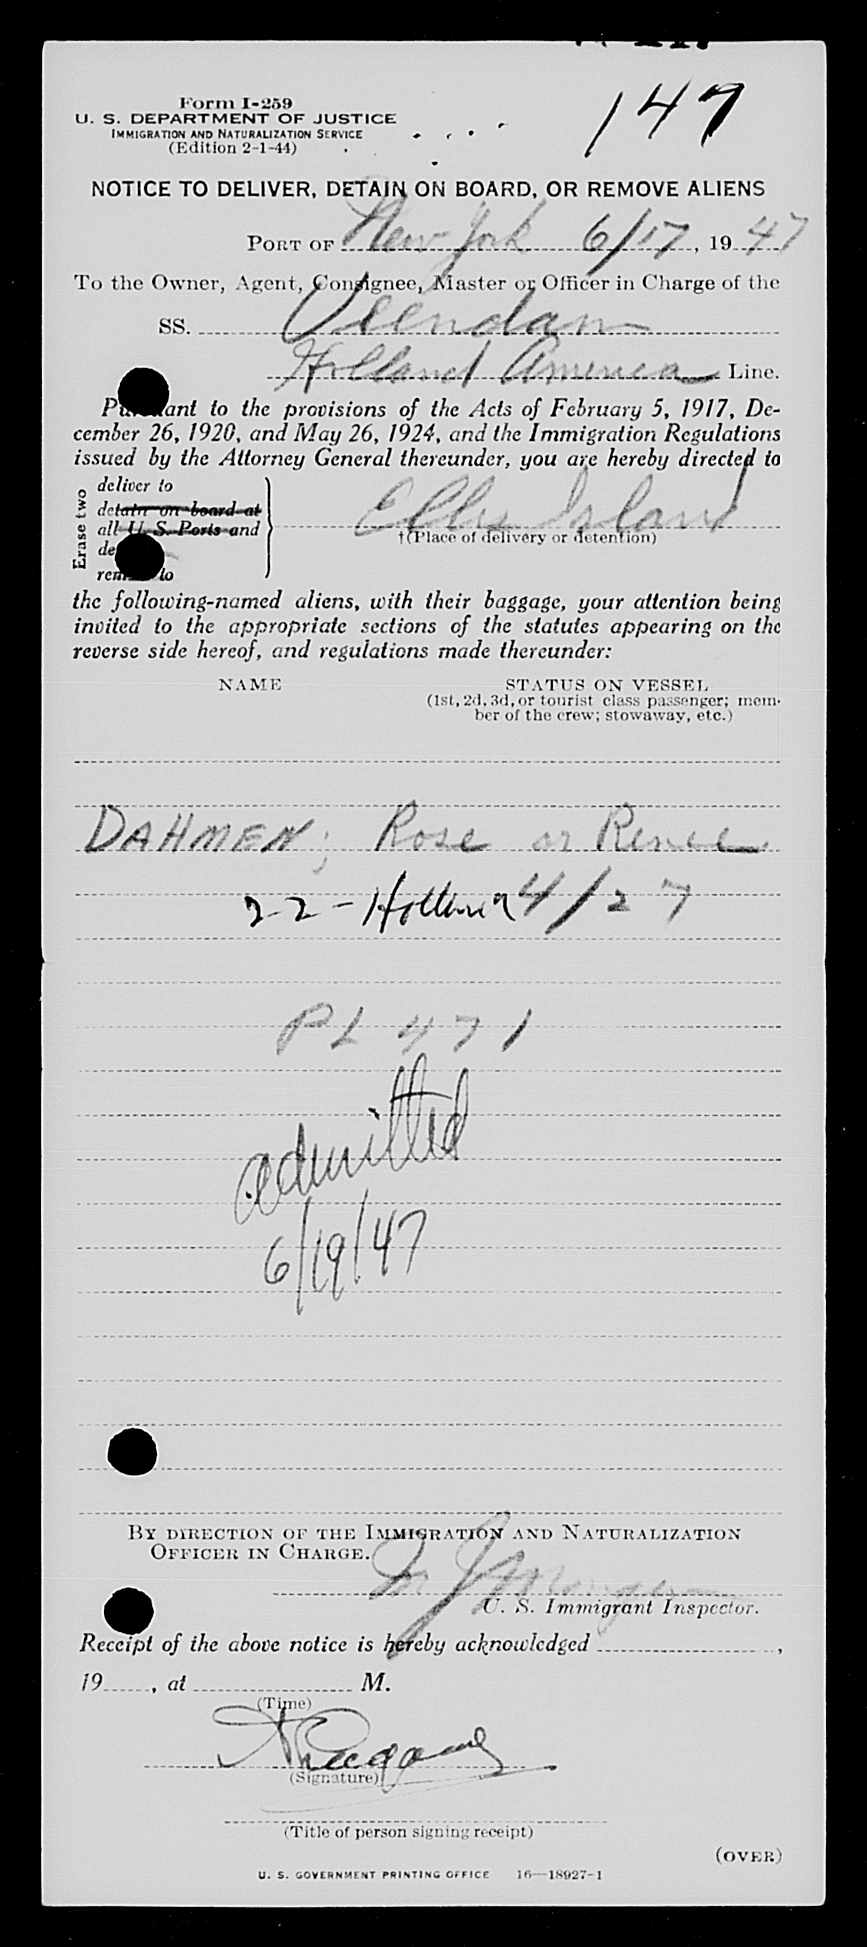 147
Form I-259
U. S. DEPARTMENT OF JUSTICE
IMMIGRATION AND NATURALIZATION SERVICE
(Edition 2-1-44)
NOTICE TO DELIVER, DETAIN ON BOARD, OR REMOVE ALIENS
PORT OF New York 6/17, 1947
To the Owner, Agent, Consignee, Master or Officer in Charge of the
SS. Veendam
Holland America Line.
Pursuant to the provisions of the Acts of February 5, 1917, De-
cember 26, 1920, and May 26, 1924, and the Immigration Regulations
issued by the Attorney General thereunder, you are hereby directed to
Erase two
deliver to
detain on board at
all U. S. Ports and
remove to
Ellis Island
†(Place of delivery or detention)
the following-named aliens, with their baggage, your attention being
invited to the appropriate sections of the statutes appearing on the
reverse side hereof, and regulations made thereunder:
NAME
STATUS ON VESSEL
(1st, 2d, 3d, or tourist class passenger; mem-
ber of the crew; stowaway, etc.)
DAHMEN; Rose or Renee
22 - 4/27
PL 471
admitted
6/19/47
BY DIRECTION OF THE IMMIGRATION AND NATURALIZATION
OFFICER IN CHARGE.
U. S. Immigrant Inspector.
Receipt of the above notice is hereby acknowledged ,
19 , at M.
(Time)
(Signature)
(Title of person signing receipt)
(OVER)
U. S. GOVERNMENT PRINTING OFFICE 16—18927-1